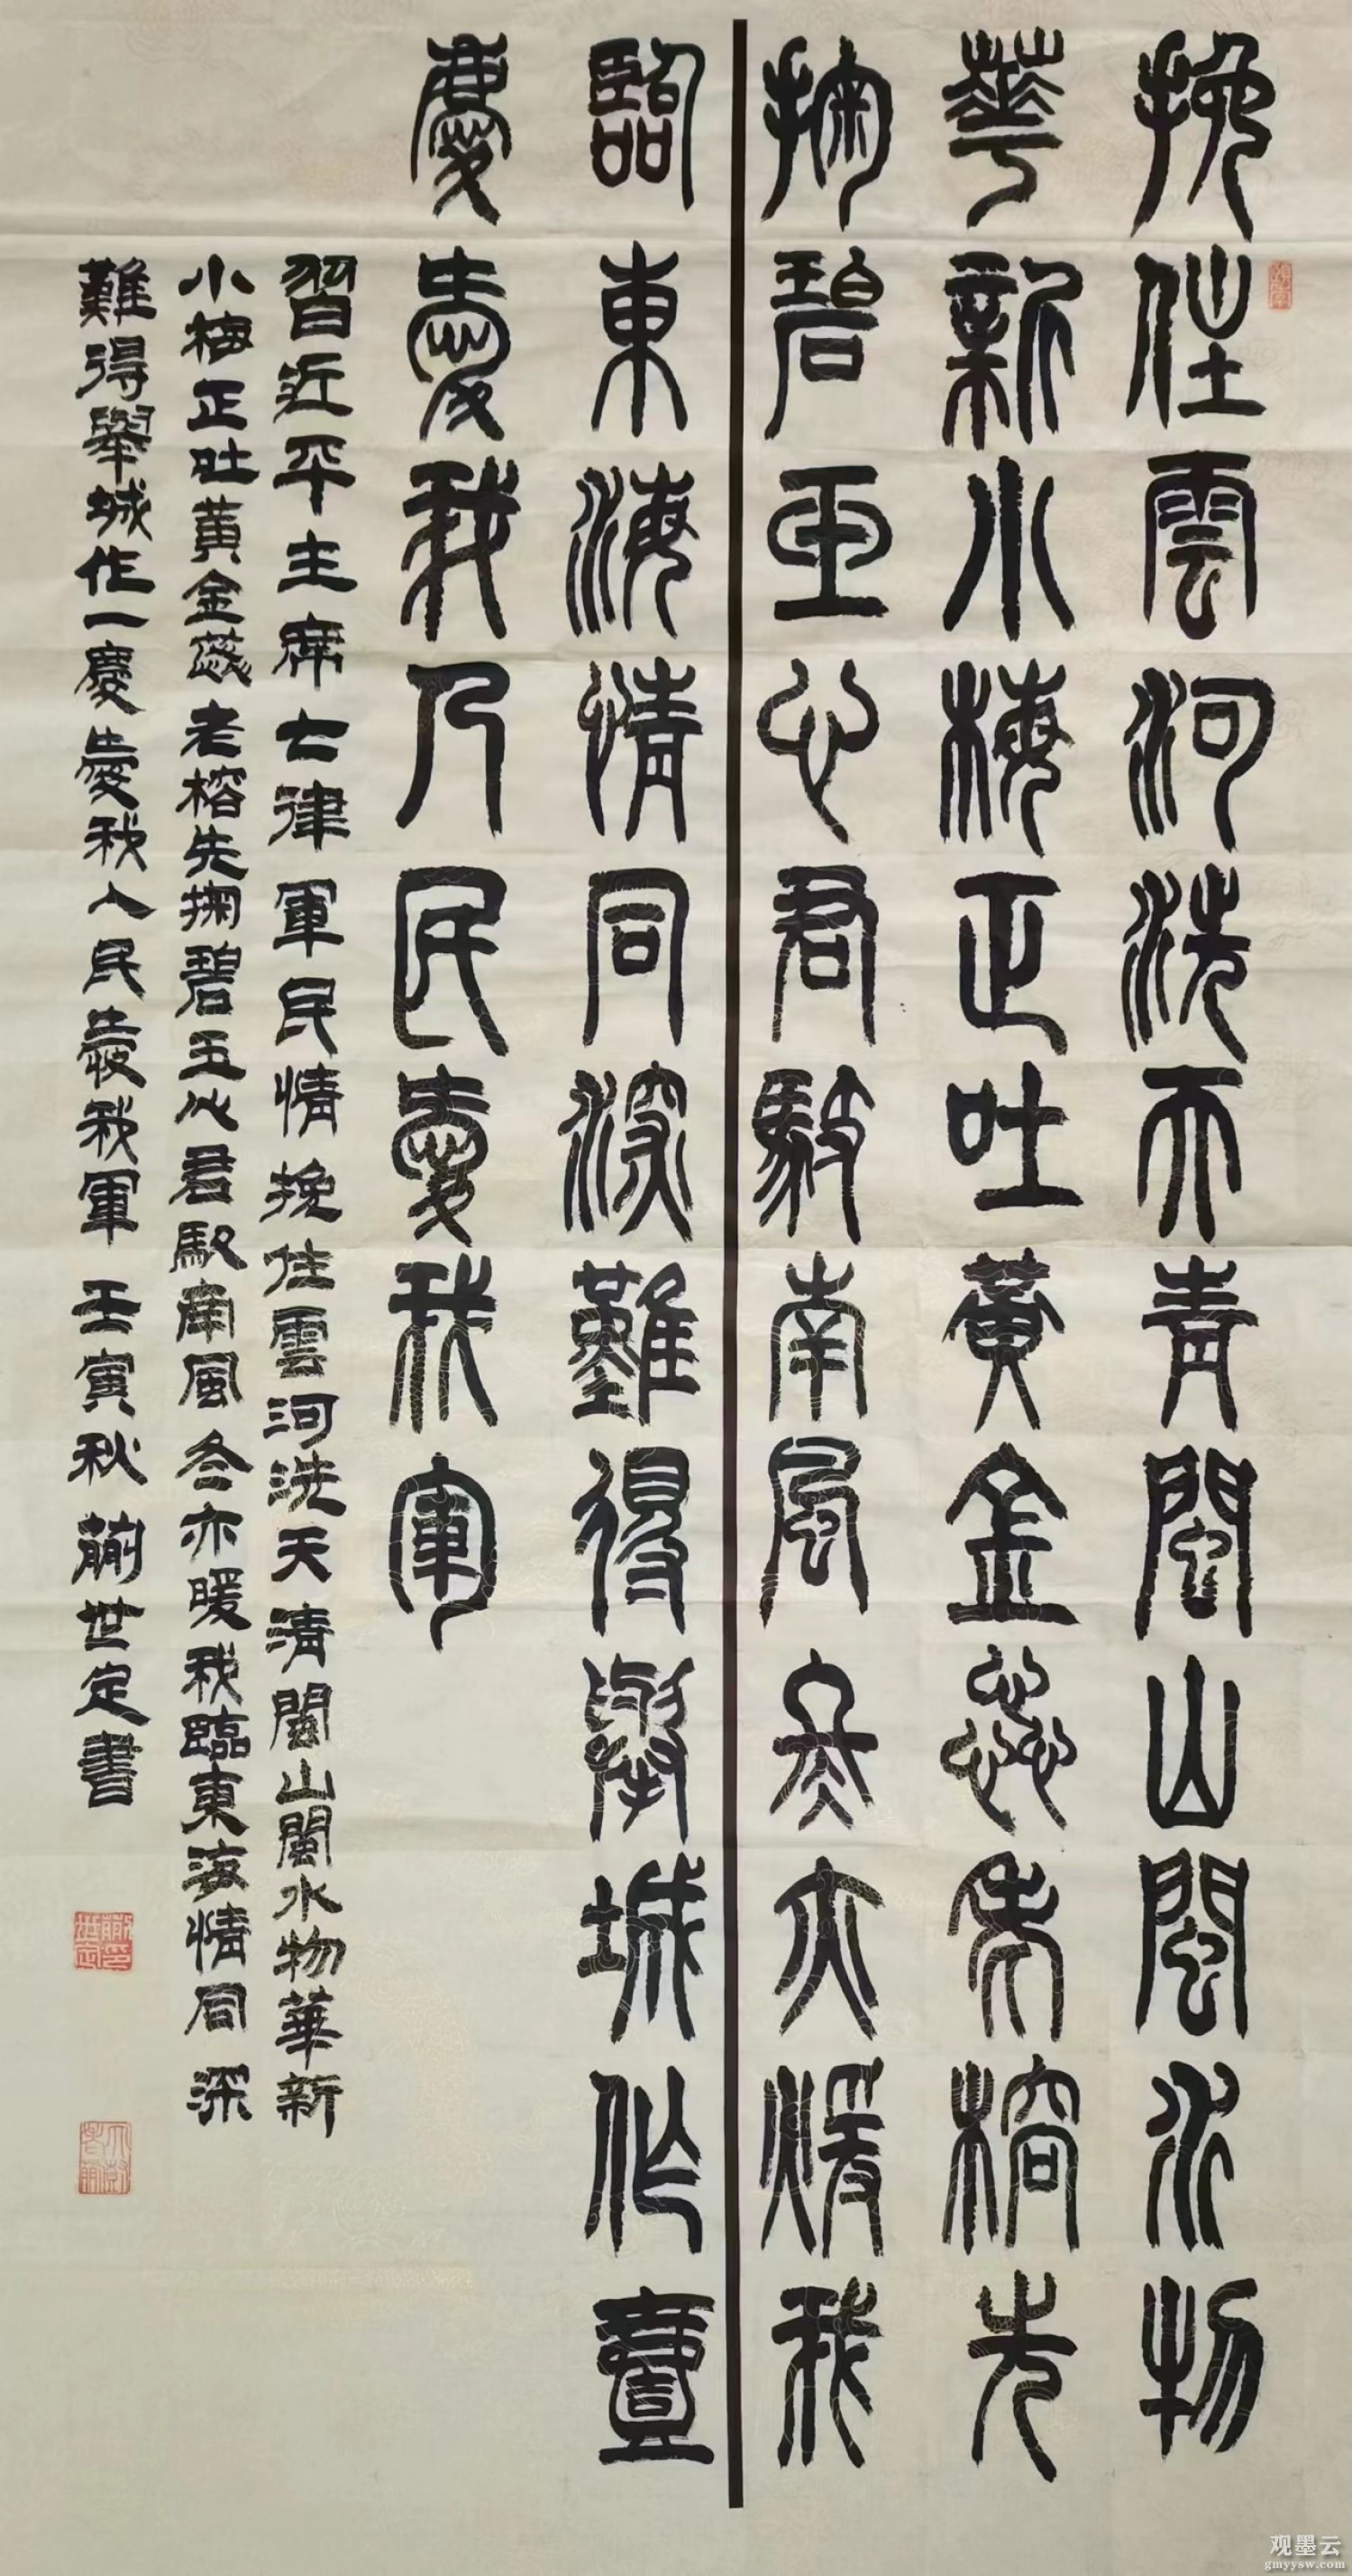 挽住雲河洗天青閩山閩水物
華新小梅正吐黃金蕊老榕先
掬碧玉心君馭南風冬亦暖我
臨東海情同深難得舉城作壹
慶愛我人民愛我軍
習近平主席七律軍民情挽住雲河洗天清閩山閩水物華新
小梅正吐黃金蕊老榕先掬碧玉心君馭南風冬亦暖我臨東海情同深
難得舉城作一慶愛我人民愛我軍壬寅秋蒯世定書
蒯印世定
观墨云
gmyysw.com